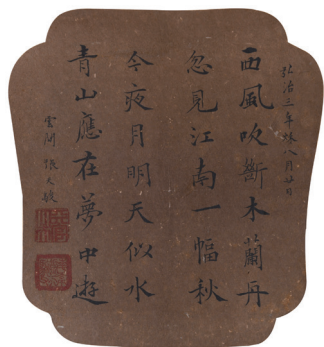 弘治三年秋八月廿日
西風吹斷木蘭舟
忽見江南一幅秋
今夜月明天似水
青山應在夢中遊
雲間張天駿